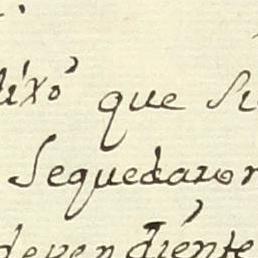 dixò que Si
Sequedaron
dependiente